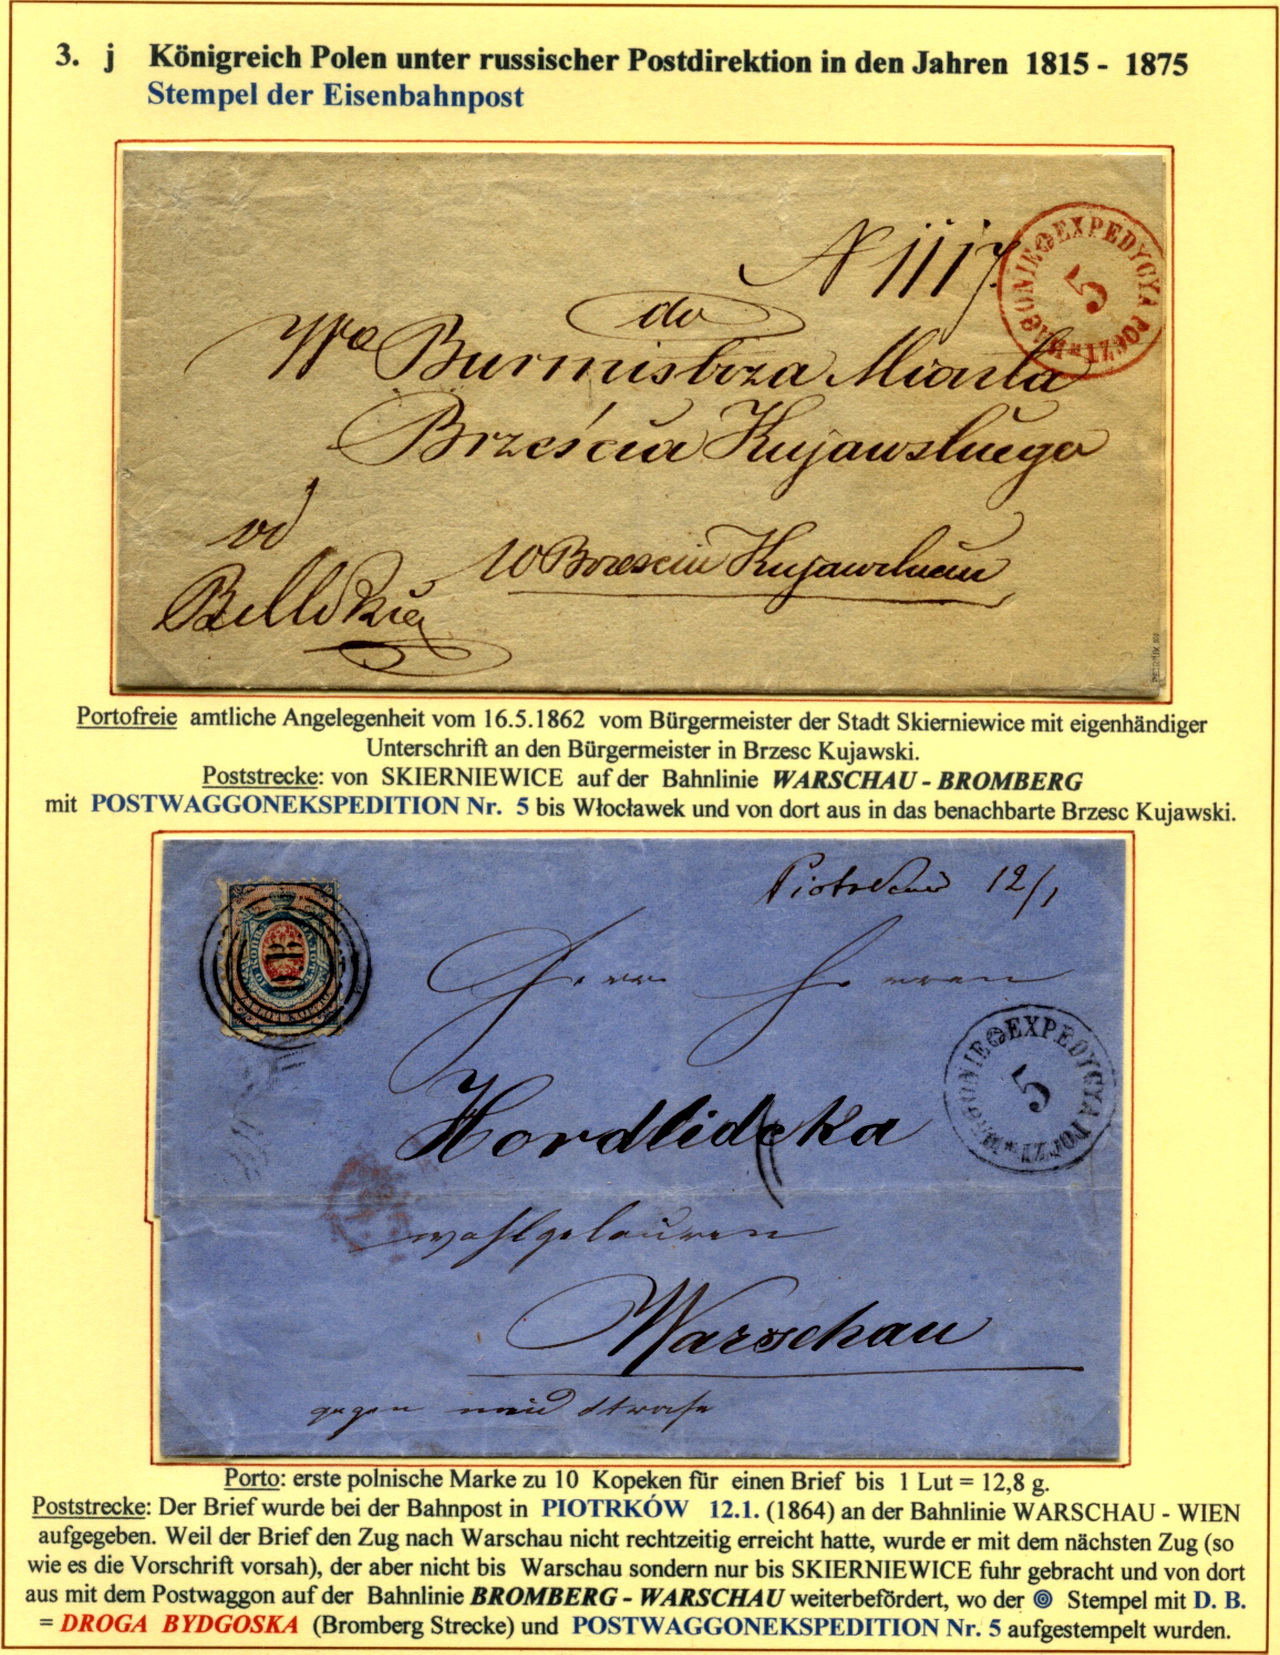 3. j Königreich Polen unter russischer Postdirektion in den Jahren 1815 - 1875
Stempel der Eisenbahnpost
N 1117.
EXPEDYCYA POCZT: WAGONIE
5
do
Wo Burmistrza Miasta
Brześcia Kujawskiego
od
w Brzesciu Kujawskiem
Portofreie amtliche Angelegenheit vom 16.5.1862 vom Bürgermeister der Stadt Skierniewice mit eigenhändiger
Unterschrift an den Bürgermeister in Brzesc Kujawski.
Poststrecke: von SKIERNIEWICE auf der Bahnlinie WARSCHAU - BROMBERG
mit POSTWAGGONEKSPEDITION Nr. 5 bis Włocławek und von dort aus in das benachbarte Brzesc Kujawski.
Piotrków 12/1
Herrn
EXPEDYCYA POCZT: WAGONIE
5
Hordlidcka
wohlgeboren
Warschau
gegen
Porto: erste polnische Marke zu 10 Kopeken für einen Brief bis 1 Lut = 12,8 g.
Poststrecke: Der Brief wurde bei der Bahnpost in PIOTRKÓW 12.1. (1864) an der Bahnlinie WARSCHAU - WIEN
aufgegeben. Weil der Brief den Zug nach Warschau nicht rechtzeitig erreicht hatte, wurde er mit dem nächsten Zug (so
wie es die Vorschrift vorsah), der aber nicht bis Warschau sondern nur bis SKIERNIEWICE fuhr gebracht und von dort
aus mit dem Postwaggon auf der Bahnlinie BROMBERG - WARSCHAU weiterbefördert, wo der Stempel mit D. B.
= DROGA BYDGOSKA (Bromberg Strecke) und POSTWAGGONEKSPEDITION Nr. 5 aufgestempelt wurden.